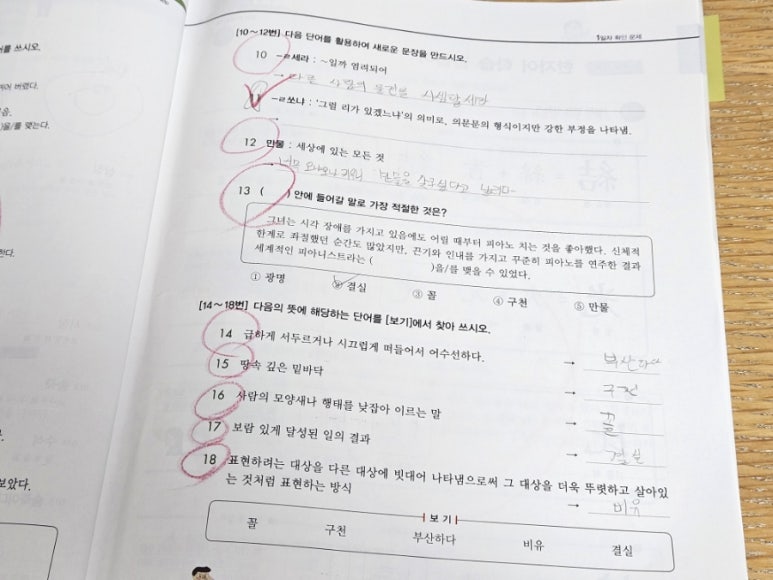 를 쓰시오.
버렸다.
을/를 맺는다.
보았다.
1일차 확인 문제
[10~12번] 다음 단어를 활용하여 새로운 문장을 만드시오.
10 -ㄹ세라 : ~일까 염려되어
→ 다른 사람의 물건을
11 -ㄹ쏘냐 : '그럴 리가 있겠느냐'의 의미로, 의문문의 형식이지만 강한 부정을 나타냄.
→
12 만물 : 세상에 있는 모든 것
→ 만물을
13 ( ) 안에 들어갈 말로 가장 적절한 것은?
그녀는 시각 장애를 가지고 있음에도 어릴 때부터 피아노 치는 것을 좋아했다. 신체적
한계로 좌절했던 순간도 많았지만, 끈기와 인내를 가지고 꾸준히 피아노를 연주한 결과
세계적인 피아니스트라는 ( )을/를 맺을 수 있었다.
① 광명 ② 결실 ③ 꼴 ④ 구천 ⑤ 만물
[14~18번] 다음의 뜻에 해당하는 단어를 [보기]에서 찾아 쓰시오.
14 급하게 서두르거나 시끄럽게 떠들어서 어수선하다. → 부산하다
15 땅속 깊은 밑바닥 → 구천
16 사람의 모양새나 행태를 낮잡아 이르는 말 → 꼴
17 보람 있게 달성된 일의 결과 → 결실
18 표현하려는 대상을 다른 대상에 빗대어 나타냄으로써 그 대상을 더욱 뚜렷하고 살아있
는 것처럼 표현하는 방식 → 비유
보기
꼴 구천 부산하다 비유 결실